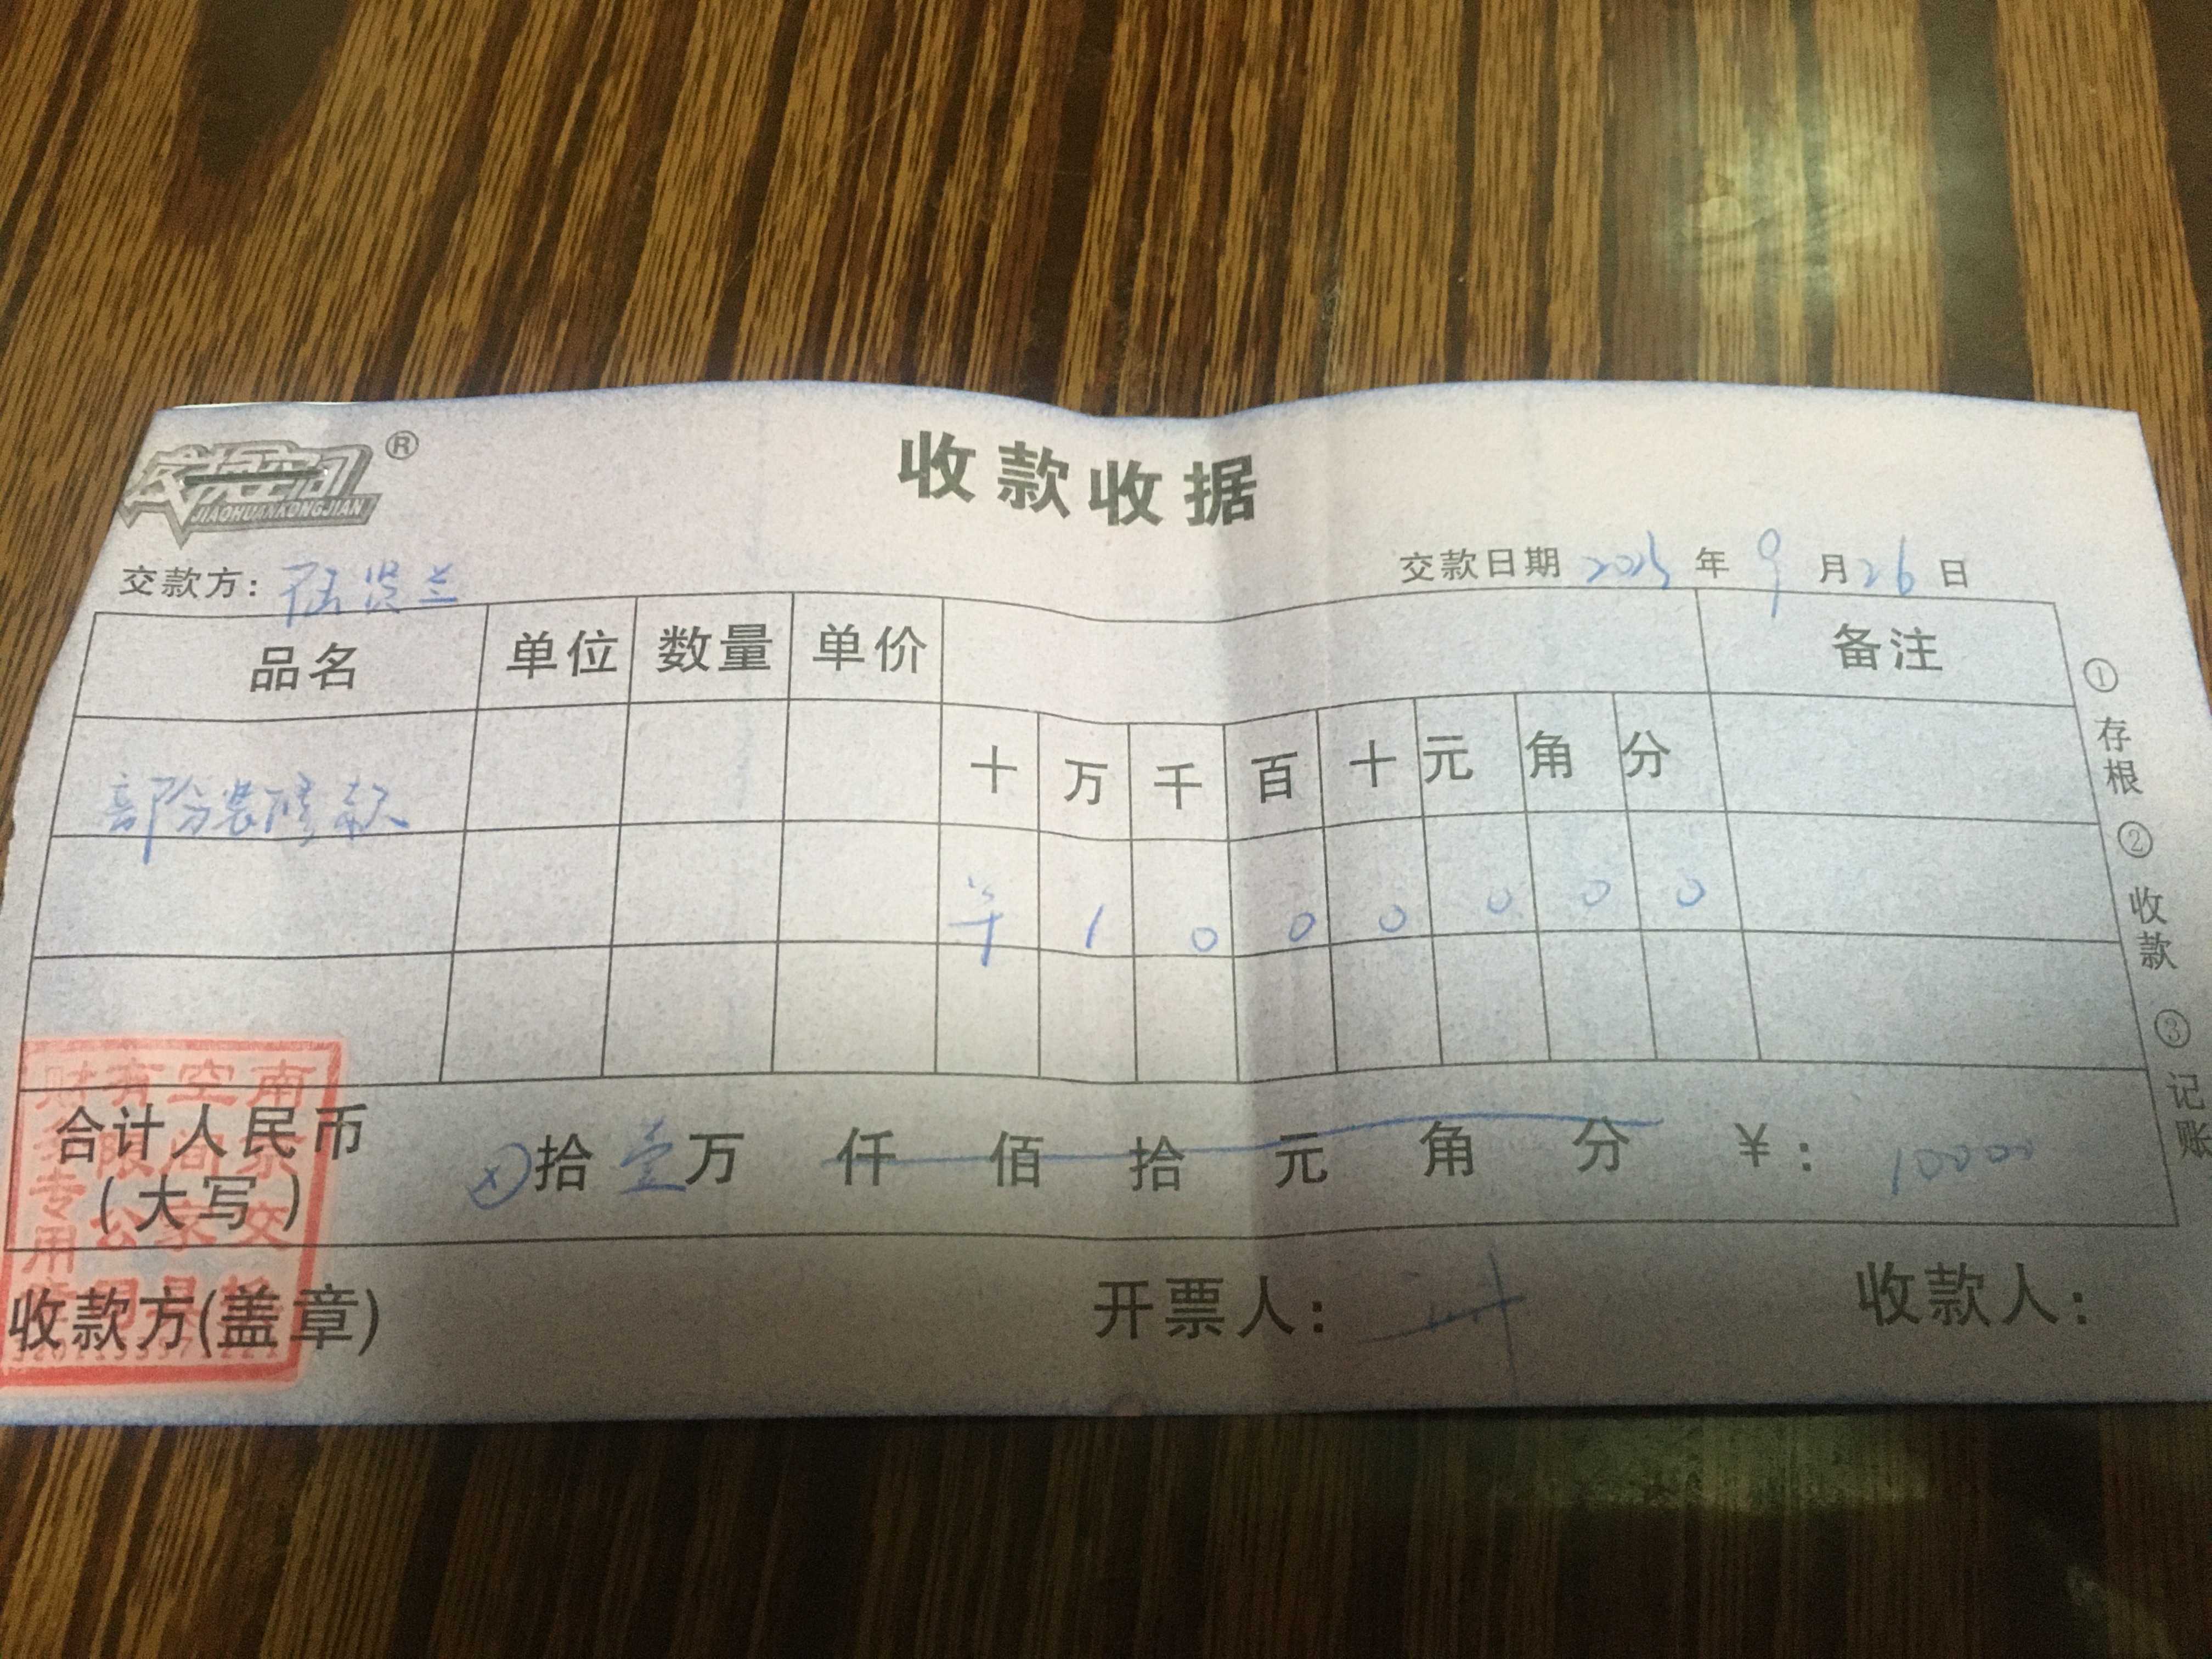 交换空间®
JIAOHUANKONGJIAN
收款收据
交款方：伍贤兰 交款日期 2025 年 9 月 26 日
品名 单位 数量 单价 备注
部份装修款 十 万 千 百 十 元 角 分
羊 1 0 0 0 0 0 0
合计人民币（大写） ⊗拾 壹万 仟 佰 拾 元 角 分 ￥：10000
收款方(盖章) 开票人： 收款人：
①存根 ②收款 ③记账
南京交换空间家具家居有限公司
财务专用章